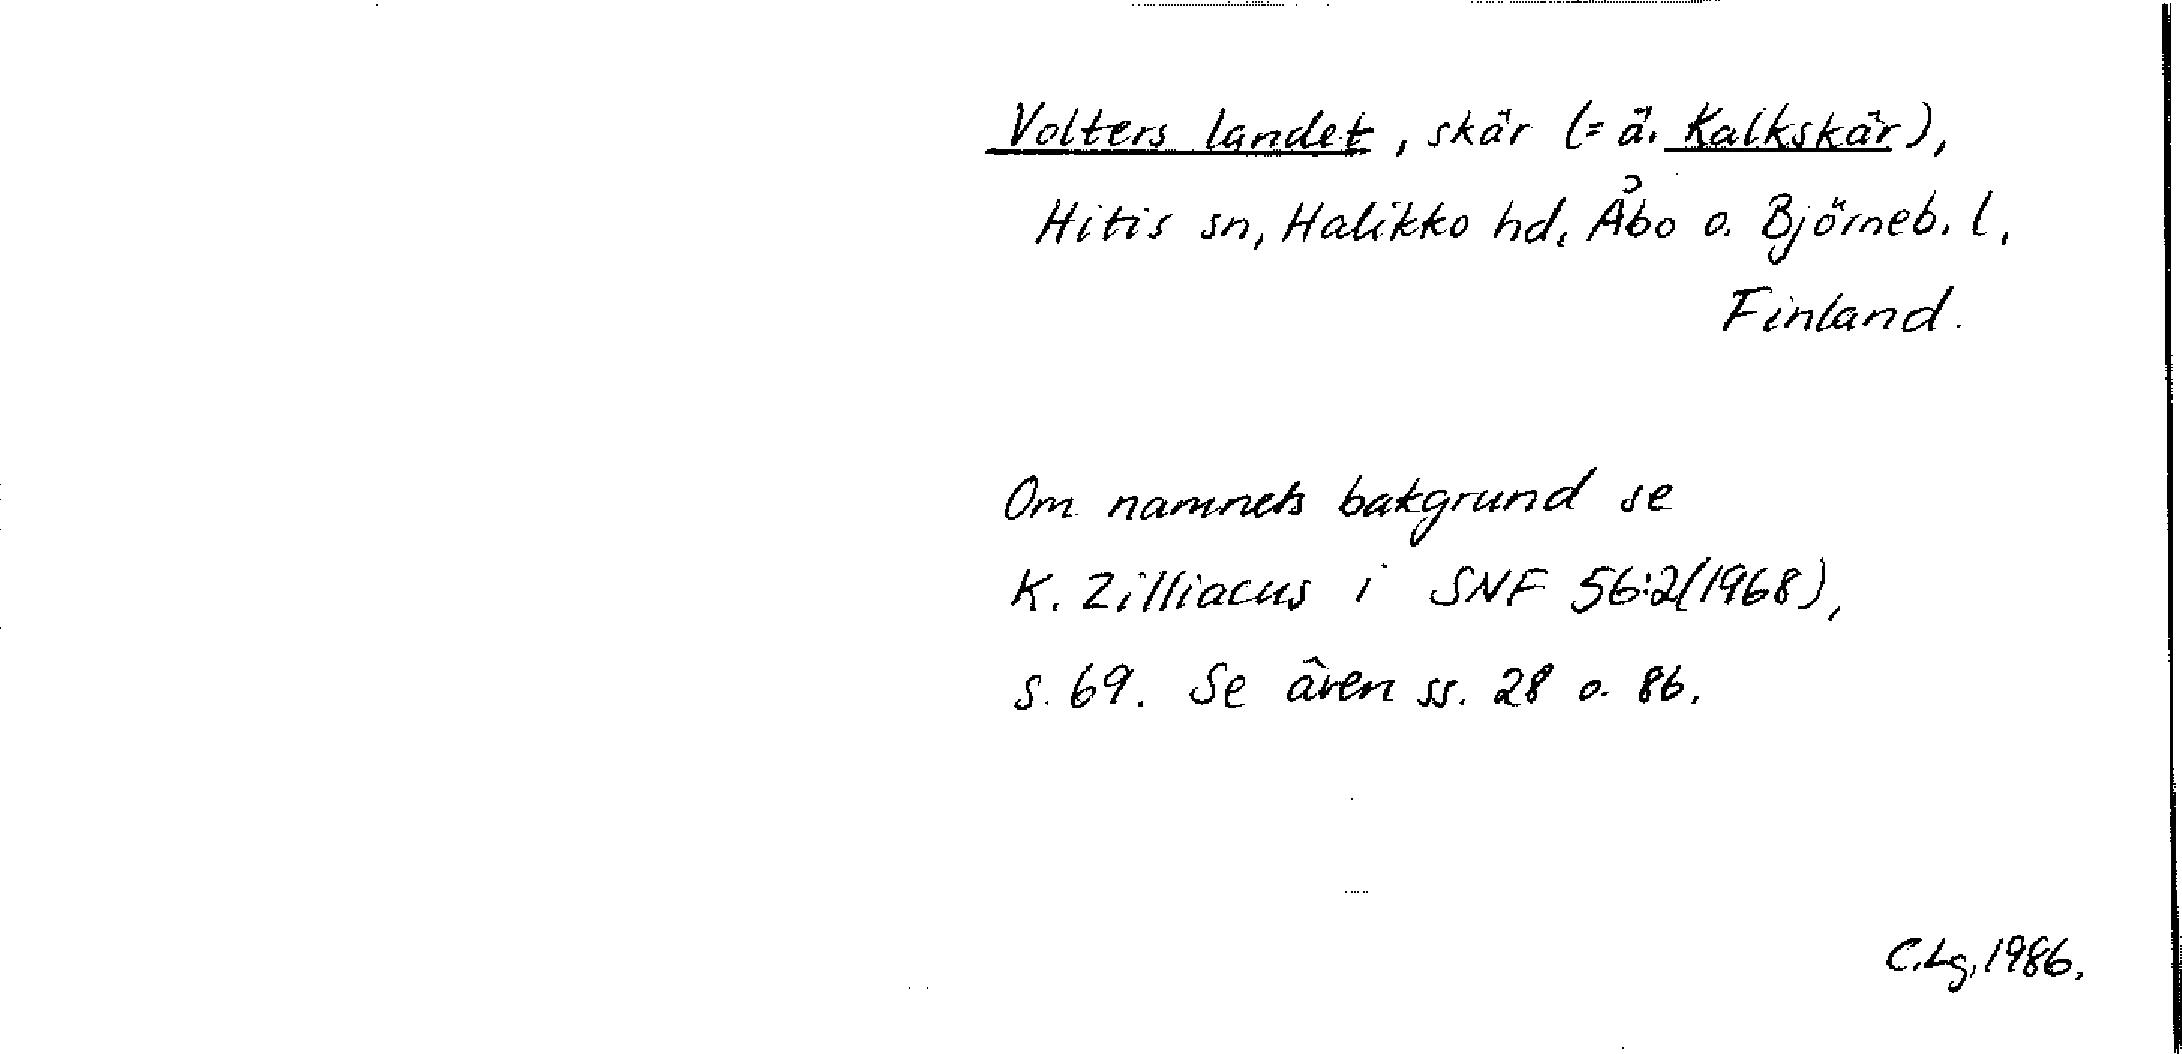 Volters landet, skär (= ä. Kalkskär),
Hitis sn, Halikko hd, Åbo o. Björneb. l,
Finland.
Om namnets bakgrund se
K. Zilliacus i SNF 56:2(1968),
s. 69. Se även ss. 28 o. 86.
C.Lg, 1986.